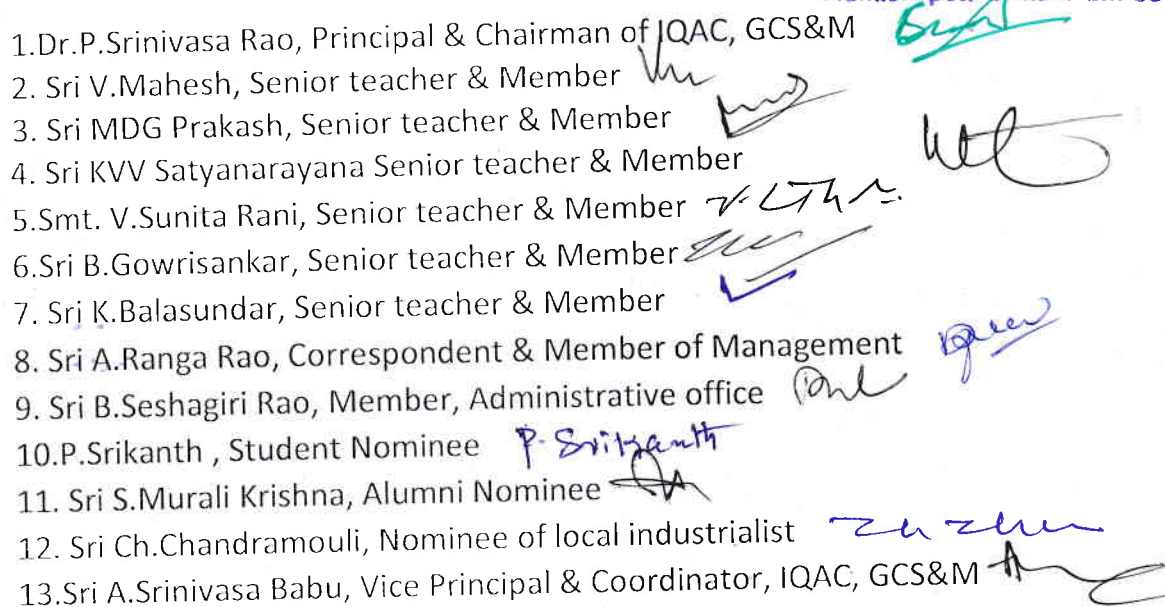 1.Dr.P.Srinivasa Rao, Principal & Chairman of IQAC, GCS&M
2. Sri V.Mahesh, Senior teacher & Member
3. Sri MDG Prakash, Senior teacher & Member
4. Sri KVV Satyanarayana Senior teacher & Member
5.Smt. V.Sunita Rani, Senior teacher & Member
6.Sri B.Gowrisankar, Senior teacher & Member
7. Sri K.Balasundar, Senior teacher & Member
8. Sri A.Ranga Rao, Correspondent & Member of Management
9. Sri B.Seshagiri Rao, Member, Administrative office
10.P.Srikanth , Student Nominee P. Srikanth
11. Sri S.Murali Krishna, Alumni Nominee
12. Sri Ch.Chandramouli, Nominee of local industrialist
13.Sri A.Srinivasa Babu, Vice Principal & Coordinator, IQAC, GCS&M